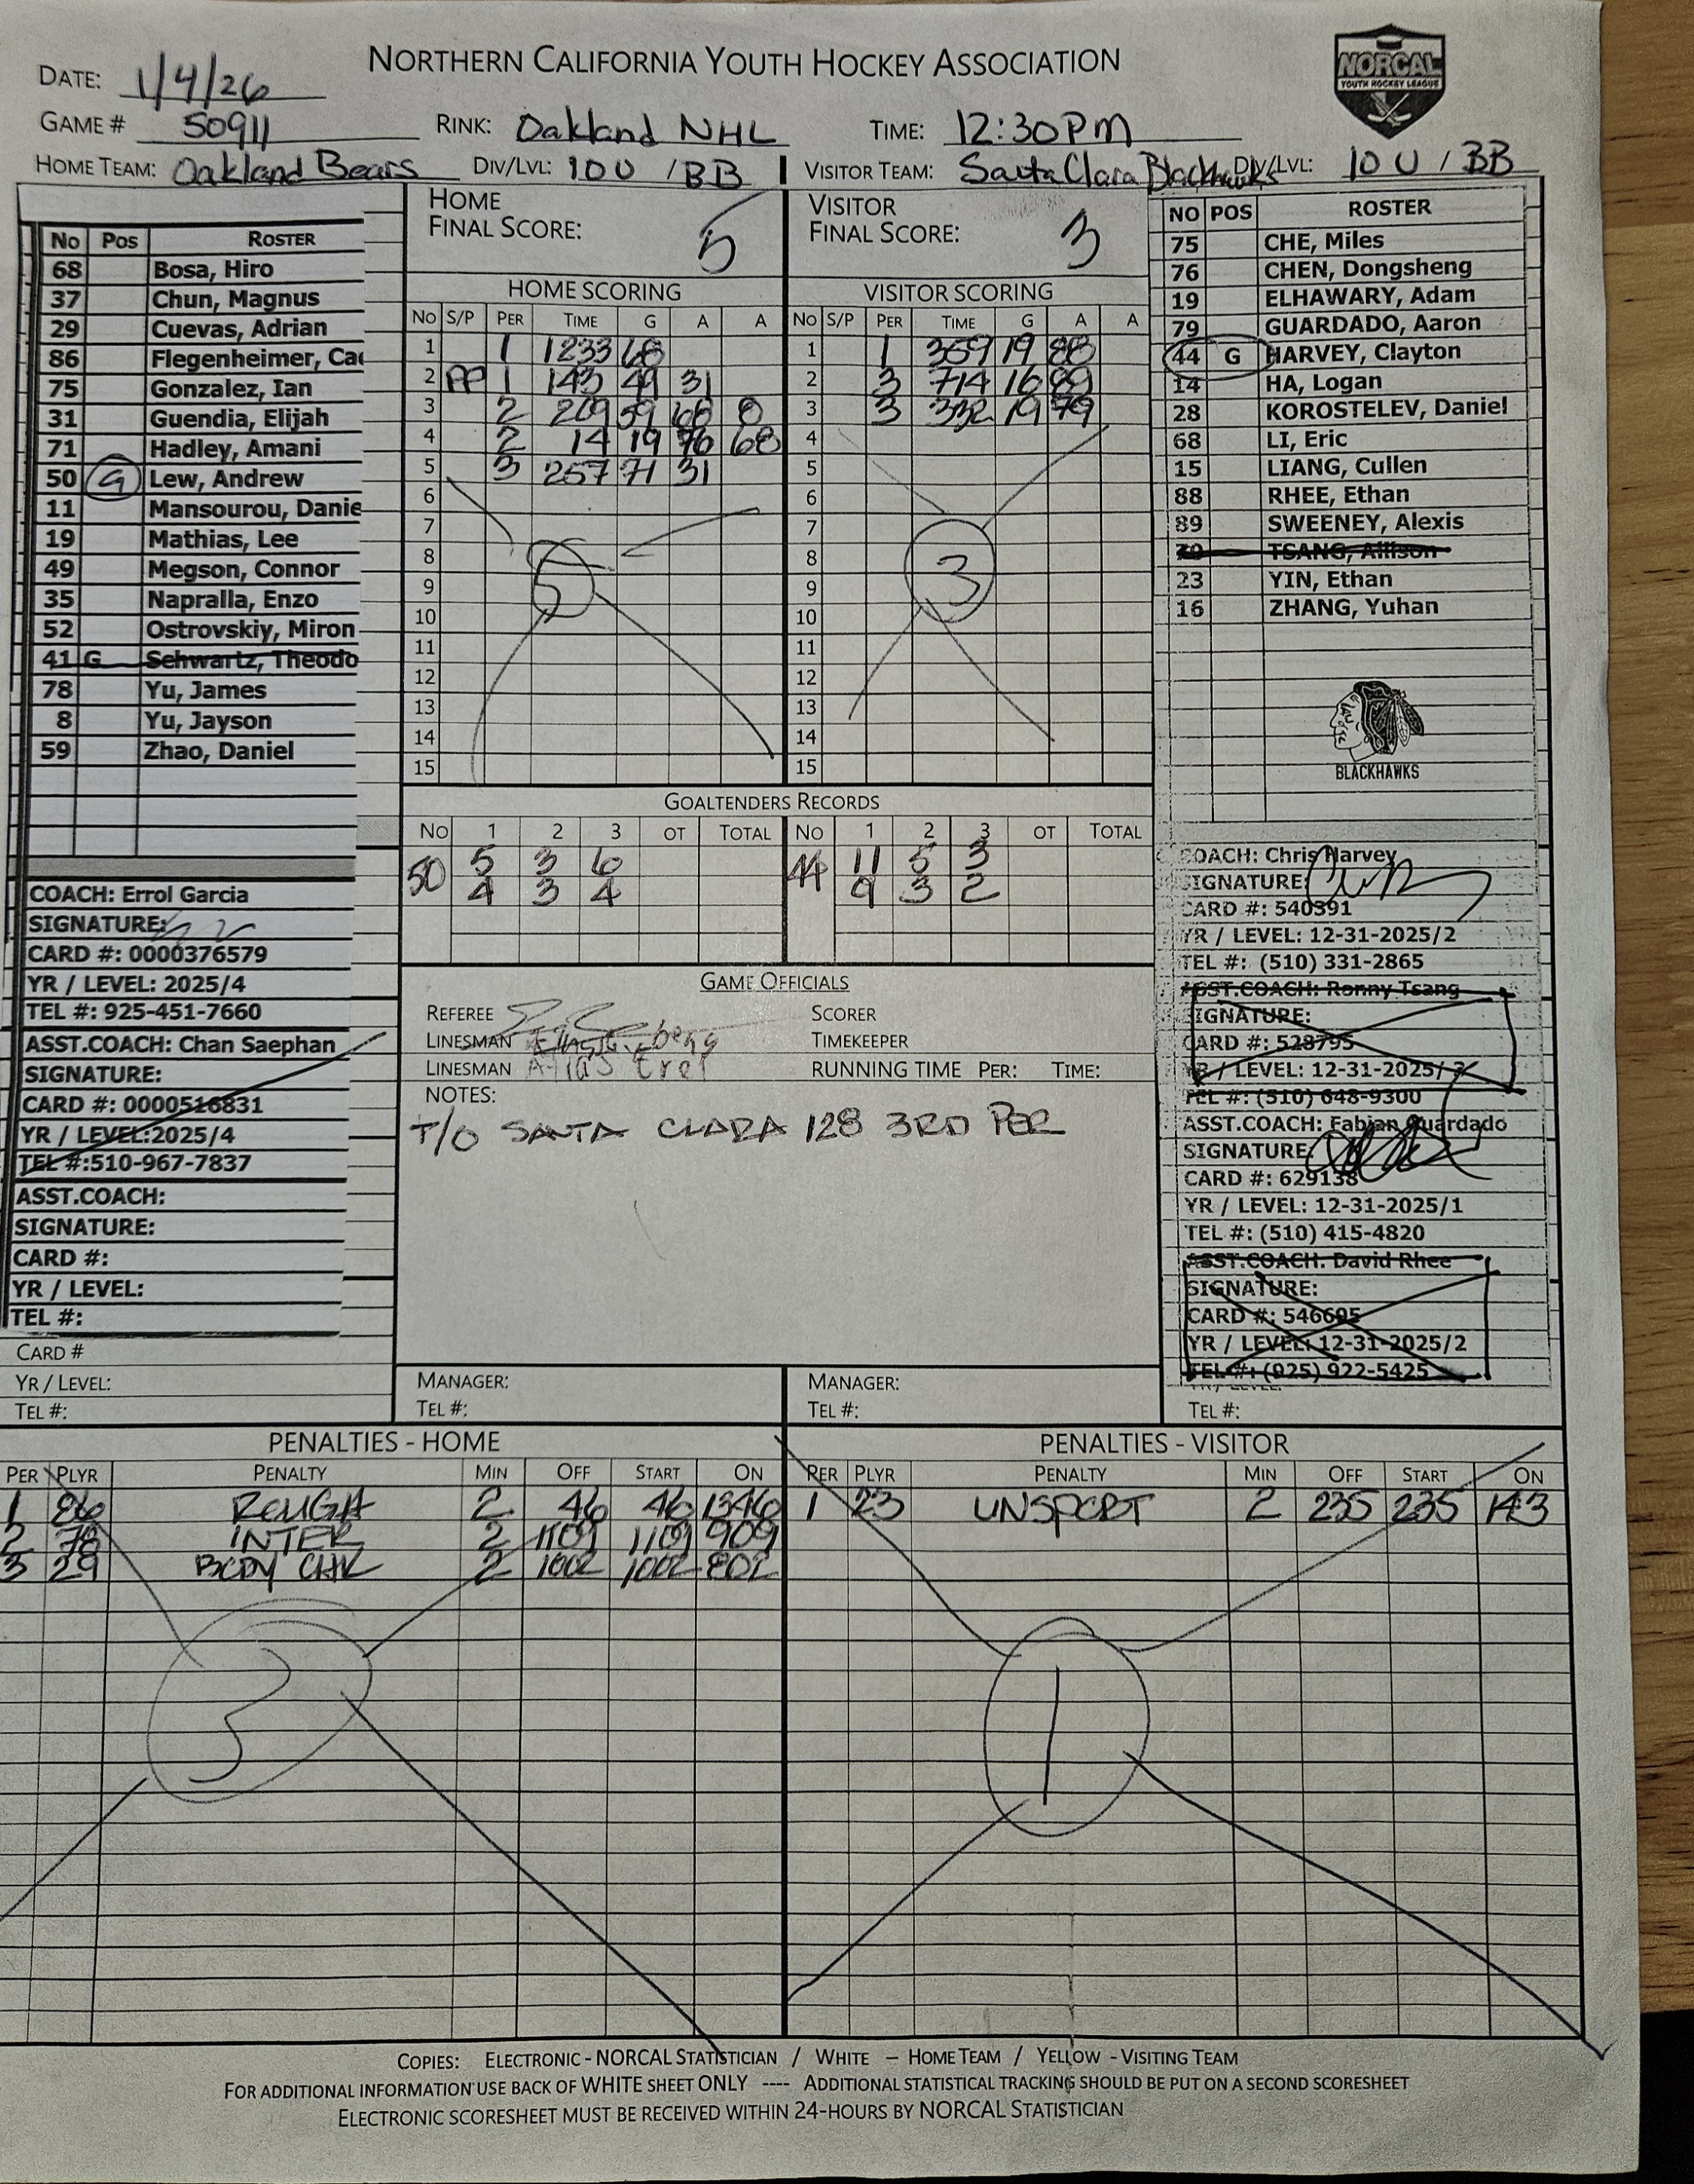 NORTHERN CALIFORNIA YOUTH HOCKEY ASSOCIATION
NORCAL
YOUTH HOCKEY LEAGUE
DATE: 1/4/26
GAME # 50911 RINK: Oakland NHL TIME: 12:30PM
HOME TEAM: Oakland Bears DIV/LVL: 10U / BB VISITOR TEAM: Santa Clara Blackhawks DIV/LVL: 10U / BB
No Pos ROSTER
68 Bosa, Hiro
37 Chun, Magnus
29 Cuevas, Adrian
86 Flegenheimer, Cae
75 Gonzalez, Ian
31 Guendia, Elijah
71 Hadley, Amani
50 G Lew, Andrew
11 Mansourou, Danie
19 Mathias, Lee
49 Megson, Connor
35 Napralla, Enzo
52 Ostrovskiy, Miron
41 G Schwartz, Theodo
78 Yu, James
8 Yu, Jayson
59 Zhao, Daniel
COACH: Errol Garcia
SIGNATURE:
CARD #: 0000376579
YR / LEVEL: 2025/4
TEL #: 925-451-7660
ASST.COACH: Chan Saephan
SIGNATURE:
CARD #: 0000516831
YR / LEVEL:2025/4
TEL #:510-967-7837
ASST.COACH:
SIGNATURE:
CARD #:
YR / LEVEL:
TEL #:
CARD #
YR / LEVEL:
TEL #:
HOME
FINAL SCORE: 5
HOME SCORING
No S/P PER TIME G A A
1 1 1233 68
2 PP 1 143 49 31
3 2 269 59 68 8
4 2 14 19 76 68
5 3 257 71 31
6
7
8
9
10
11
12
13
14
15
5
VISITOR
FINAL SCORE: 3
VISITOR SCORING
No S/P PER TIME G A A
1 1 359 19 88
2 3 714 16 89
3 3 332 19 79
4
5
6
7
8
9
10
11
12
13
14
15
3
GOALTENDERS RECORDS
No 1 2 3 OT TOTAL No 1 2 3 OT TOTAL
50 5 3 6 44 11 5 3
4 3 4 9 3 2
GAME OFFICIALS
REFEREE SCORER
LINESMAN TIMEKEEPER
LINESMAN RUNNING TIME PER: TIME:
NOTES:
T/O SANTA CLARA 128 3RD PER
MANAGER:
TEL #:
MANAGER:
TEL #:
NO POS ROSTER
75 CHE, Miles
76 CHEN, Dongsheng
19 ELHAWARY, Adam
79 GUARDADO, Aaron
44 G HARVEY, Clayton
14 HA, Logan
28 KOROSTELEV, Daniel
68 LI, Eric
15 LIANG, Cullen
88 RHEE, Ethan
89 SWEENEY, Alexis
TSANG, Allison
23 YIN, Ethan
16 ZHANG, Yuhan
BLACKHAWKS
COACH: Chris Harvey
SIGNATURE:
CARD #: 540391
YR / LEVEL: 12-31-2025/2
TEL #: (510) 331-2865
ASST.COACH: Ronny Tsang
SIGNATURE:
CARD #: 528795
YR / LEVEL: 12-31-2025/
TEL #: (510) 648-9300
ASST.COACH: Fabian Guardado
SIGNATURE:
CARD #: 629138
YR / LEVEL: 12-31-2025/1
TEL #: (510) 415-4820
ASST.COACH: David Rhee
SIGNATURE:
CARD #: 546695
YR / LEVEL: 12-31-2025/2
TEL #: (925) 922-5425
TEL #:
PENALTIES - HOME
PER PLYR PENALTY MIN OFF START ON
1 86 ROUGH 2 46 46 1346
2 78 INTER 2 1109 1109 909
3 29 BODY CHK 2 1002 1002 802
3
PENALTIES - VISITOR
PER PLYR PENALTY MIN OFF START ON
1 23 UNSPORT 2 235 235 143
1
COPIES: ELECTRONIC - NORCAL STATISTICIAN / WHITE – HOME TEAM / YELLOW - VISITING TEAM
FOR ADDITIONAL INFORMATION USE BACK OF WHITE SHEET ONLY ---- ADDITIONAL STATISTICAL TRACKING SHOULD BE PUT ON A SECOND SCORESHEET
ELECTRONIC SCORESHEET MUST BE RECEIVED WITHIN 24-HOURS BY NORCAL STATISTICIAN